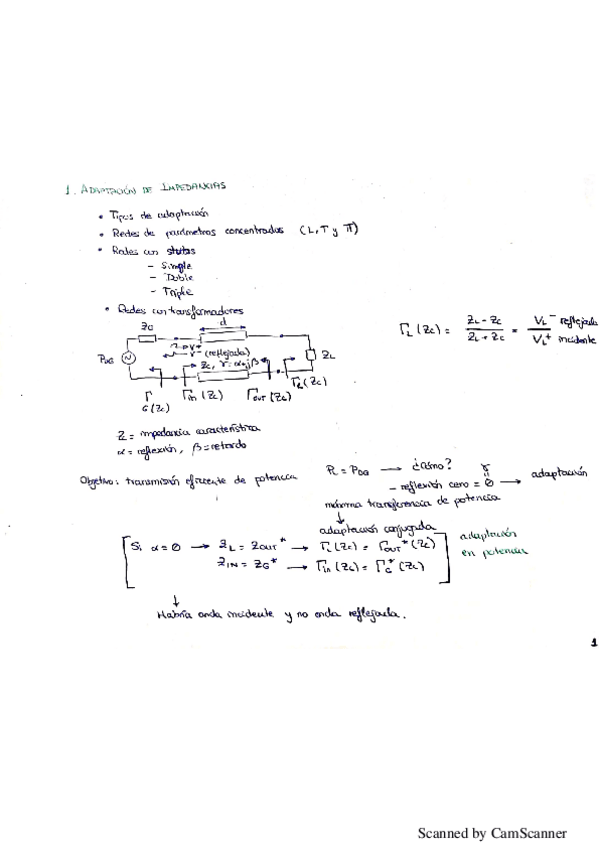 1. ADAPTACIÓN DE IMPEDANCIAS
• Tipos de adaptación
• Redes de parámetros concentrados (L, T y π)
• Redes con stubs
– Simple
– Doble
– Triple
• Redes con transformadores
ZG d
V+
V- (reflejada)
Zc, γ = α+jβ
ZL
Γ G(Zc) Γin (Zc) Γout (Zc) ΓL(Zc)
ΓL (Zc) = ZL - Zc / ZL + Zc = VL- reflejada / VL+ incidente
Z = impedancia característica
α = reflexión, β = retardo
Objetivo: transmisión eficiente de potencia
PL = PDG → ¿Cómo?
– reflexión cero = 0 → adaptación
máxima transferencia de potencia
↓
adaptación conjugada
Si α = 0 → ZL = ZOUT* → ΓL(Zc) = ΓOUT*(Zc)
ZIN = ZG* → Γin(Zc) = ΓG*(Zc)
adaptación
en potencia
↓
Habría onda incidente y no onda reflejada.
1
Scanned by CamScanner